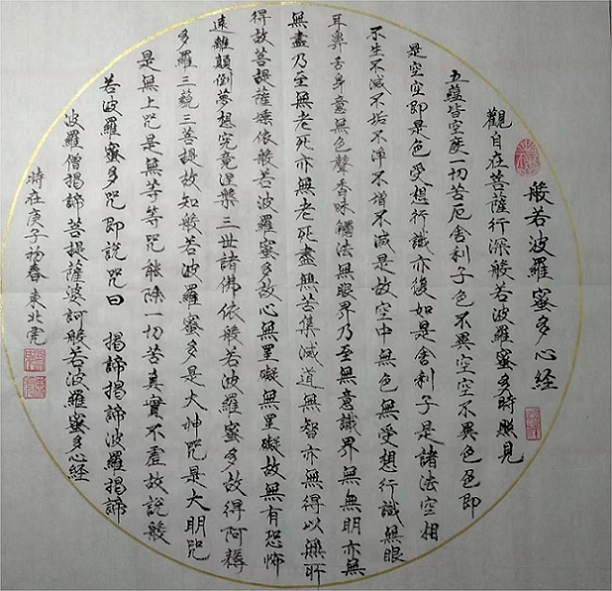 般若波羅蜜多心経
觀自在菩薩行深般若波羅蜜多時照見
五蘊皆空度一切苦厄舍利子色不異空空不異色色即
是空空即是色受想行識亦復如是舍利子是諸法空相
不生不滅不垢不淨不增不減是故空中無色無受想行識無眼
耳鼻舌身意無色聲香味觸法無眼界乃至無意識界無無明亦無
無盡乃至無老死亦無老死盡無苦集滅道無智亦無得以無所
得故菩提薩埵依般若波羅蜜多故心無罣礙無罣礙故無有恐怖
遠離顛倒夢想究竟涅槃三世諸佛依般若波羅蜜多故得阿耨
多羅三藐三菩提故知般若波羅蜜多是大神咒是大明咒
是無上咒是無等等咒能除一切苦真實不虛故說般
若波羅蜜多咒即說咒曰 揭諦揭諦波羅揭諦
波羅僧揭諦菩提薩婆訶般若波羅蜜多心経
時在庚子初春東北虎